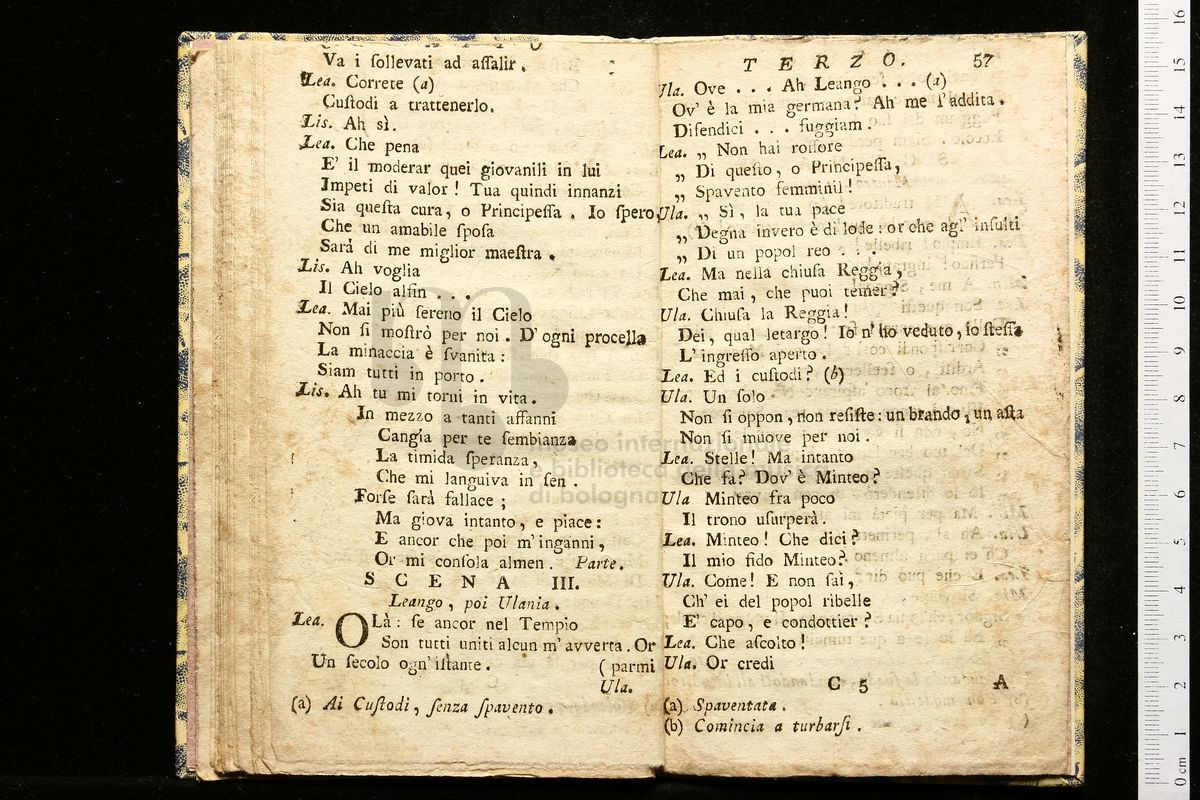 Va i ſollevati ad aſſalir.
Lea. Correte (a)
Cuſtodi a trattenerlo.
Lis. Ah sì.
Lea. Che pena
E' il moderar quei giovanili in lui
Impeti di valor! Tua quindi innanzi
Sia queſta cura, o Principeſſa. Io ſpero,
Che un amabile ſpoſa
Sarà di me miglior maeſtra.
Lis. Ah voglia
Il Cielo alfin . . .
Lea. Mai più ſereno il Cielo
Non ſi moſtrò per noi. D' ogni procella
La minaccia è ſvanita:
Siam tutti in porto.
Lis. Ah tu mi torni in vita.
In mezzo a tanti affanni
Cangia per te ſembianza
La timida ſperanza,
Che mi languiva in ſen.
Forſe ſarà fallace;
Ma giova intanto, e piace:
E ancor che poi m' inganni,
Or mi conſola almen. Parte.
SCENA III.
Leango, poi Ulania.
Lea. OLà: ſe ancor nel Tempio
Son tutti uniti alcun m' avverta. Or
Un ſecolo ogn' iſtante. (parmi
Ula.
(a) Ai Cuſtodi, ſenza ſpavento.
TERZO. 57
Ula. Ove . . . Ah Leango . . . (a)
Ov' è la mia germana? Ah me l' addita.
Difendici . . . fuggiam.
Lea. „ Non hai roſſore
„ Di queſto, o Principeſſa,
„ Spavento femminil!
Ula. „ Sì, la tua pace
„ Degna invero è di lode: or che agl' inſulti
„ Di un popol reo . . .
Lea. Ma nella chiuſa Reggia,
Che mai, che puoi temer?
Ula. Chiuſa la Reggia!
Dei, qual letargo! Io n' ho veduto, io ſteſſa
L' ingreſſo aperto.
Lea. Ed i cuſtodi? (b)
Ula. Un ſolo
Non ſi oppon, non reſiſte: un brando, un aſta
Non ſi muove per noi.
Lea. Stelle! Ma intanto
Che fa? Dov' è Minteo?
Ula Minteo fra poco
Il trono uſurperà.
Lea. Minteo! Che dici?
Il mio fido Minteo?
Ula. Come! E non ſai,
Ch' ei del popol ribelle
E' capo, e condottier?
Lea. Che aſcolto!
Ula. Or credi
C 5 A
(a) Spaventata.
(b) Comincia a turbarſi.
museo internazionale
e biblioteca della musica
di bologna